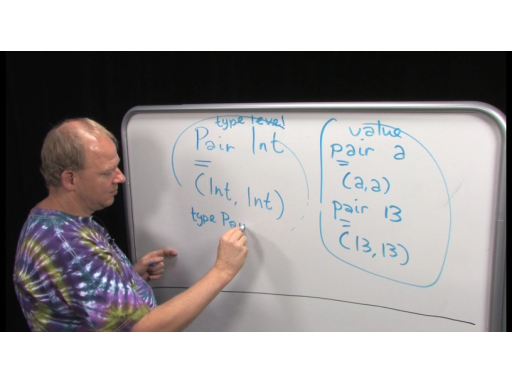 type level
Pair Int
=
(Int, Int)
type Pai
value
pair a
=
(a,a)
pair 13
=
(13,13)